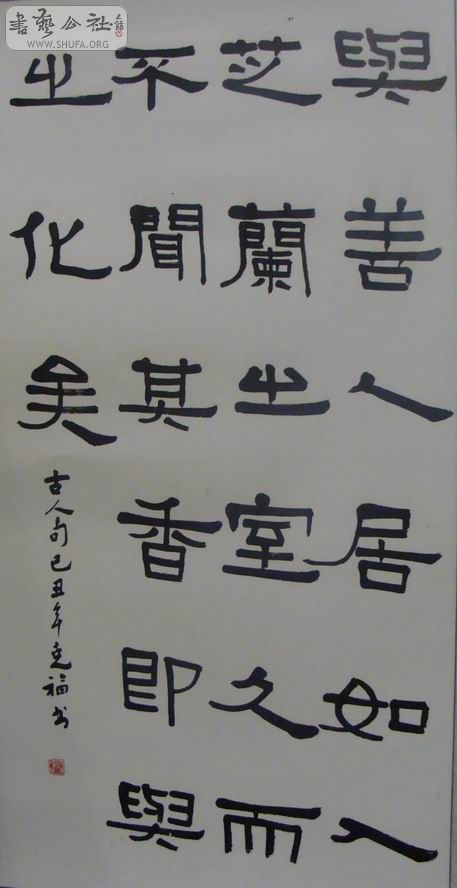 與善人居如入
芝蘭之室久而
不聞其香即與
之化矣
古人句己丑年克福书
書藝公社
WWW.SHUFA.ORG